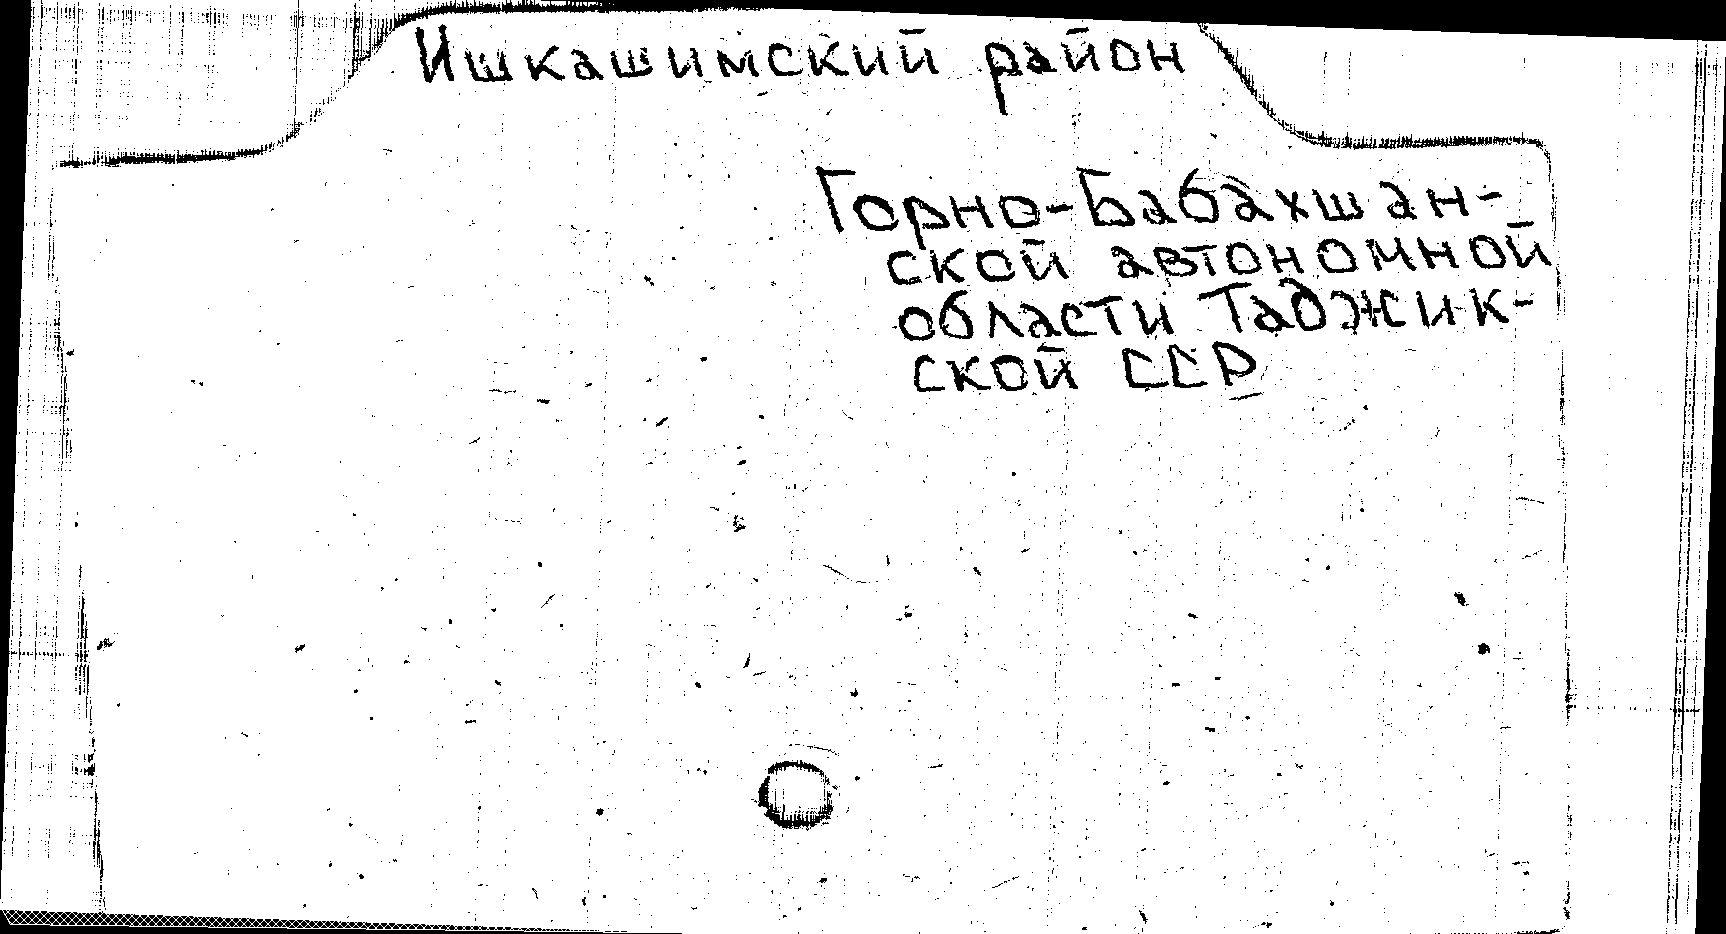 Ишкашимский район
Горно-Бабахшан-
ской автономной
области Таджик-
ской ССР